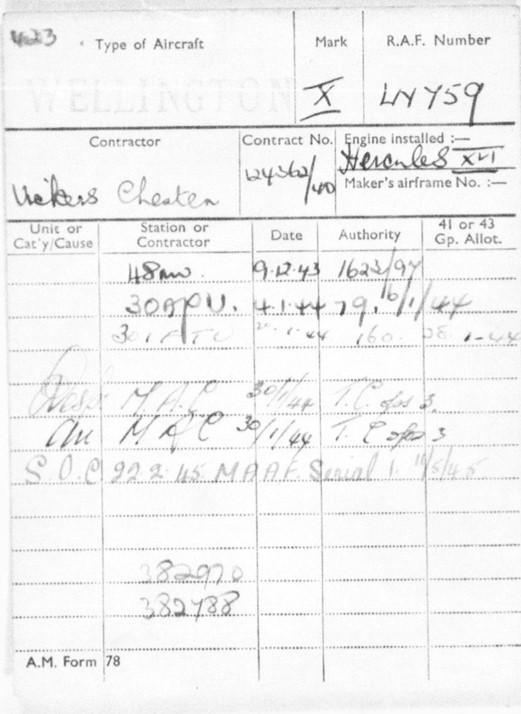 423
Type of Aircraft Mark R.A.F. Number
WELLINGTON X LN759
Contractor Contract No. Engine installed :—
Vickers Chester 124362/40 Hercules XVI
Maker's airframe No. :—
Unit or Cat'y/Cause Station or Contractor Date Authority 41 or 43 Gp. Allot.
48 MU. 9.12.43 1623/97
4.1.44 79. 10/1/44
301 FTU 1.44 160. 28.1.44
M.A.C 30/1/44 T.C. ops 3.
Arr M.A.C 30/1/44 T.C ops 3
S.O.C 22.2.45 M A A F. Serial 1. 5/45
382970
382788
A.M. Form 78